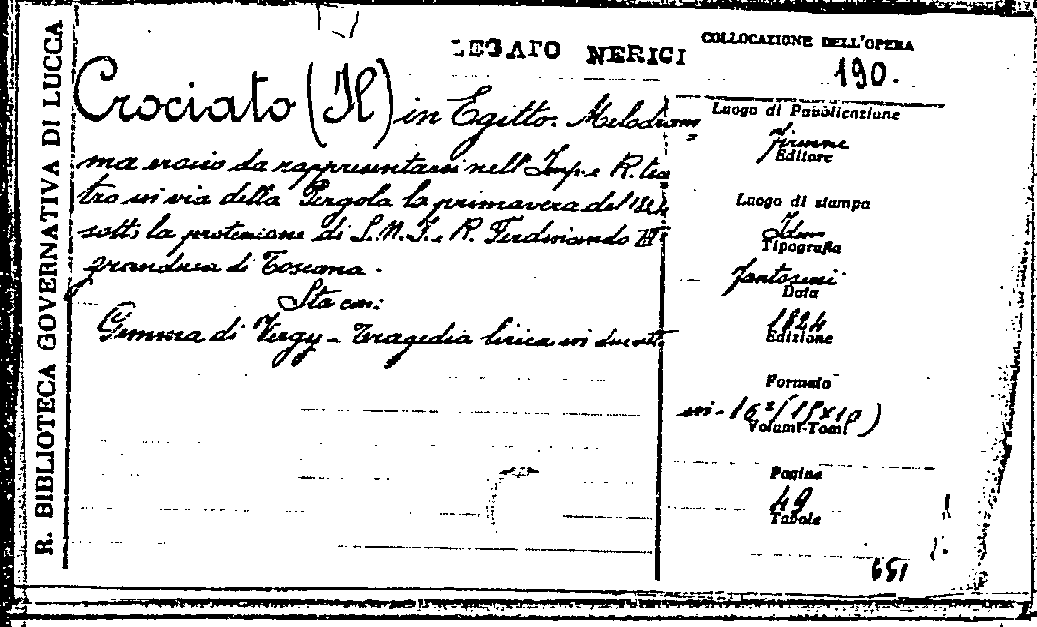 R. BIBLIOTECA GOVERNATIVA DI LUCCA
LEGATO NERICI
COLLOCAZIONE DELL'OPERA
190.
Crociato (Il) in Egitto. Melodram=
ma eroico da rappresentarsi nell'Imp. e R. tea
tro in via della Pergola la primavera del 1824
sotto la protezione di S. M. I. e R. Ferdinando III
granduca di Toscana.
Sta con:
Gemma di Vergy - Tragedia lirica in due atti
Luogo di Pubblicazione
Firenze
Editore
Luogo di stampa
Idem
Tipografia
Fantosini
Data
1824
Edizione
Formato
in-16°
Volumi-Tomi
Pagine
49
Tavole
651